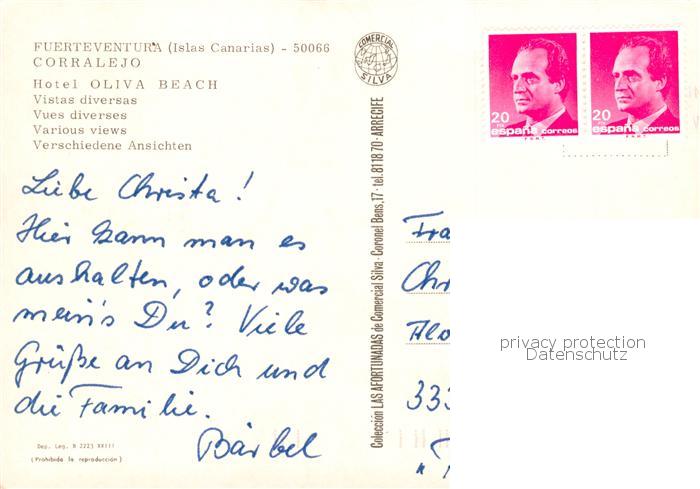 FUERTEVENTURA (Islas Canarias) - 50066
CORRALEJO
Hotel OLIVA BEACH
Vistas diversas
Vues diverses
Various views
Verschiedene Ansichten
COMERCIAL SILVA
20 PTA
españa correos
F.N.M.T.
20 PTA
españa correos
F.N.M.T.
Liebe Christa!
Hier kann man es
aushalten, oder was
mein's Du? Viele
Grüße an Dich und
die Familie.
Bärbel
Dep. Leg. B 2223 XXIII
(Prohibida la reproducción)
Colección LAS AFORTUNADAS de Comercial Silva - Coronel Bens, 17 - tel. 81 18 70 - ARRECIFE
Fra
Chr
Alo
333
"T
privacy protection
Datenschutz